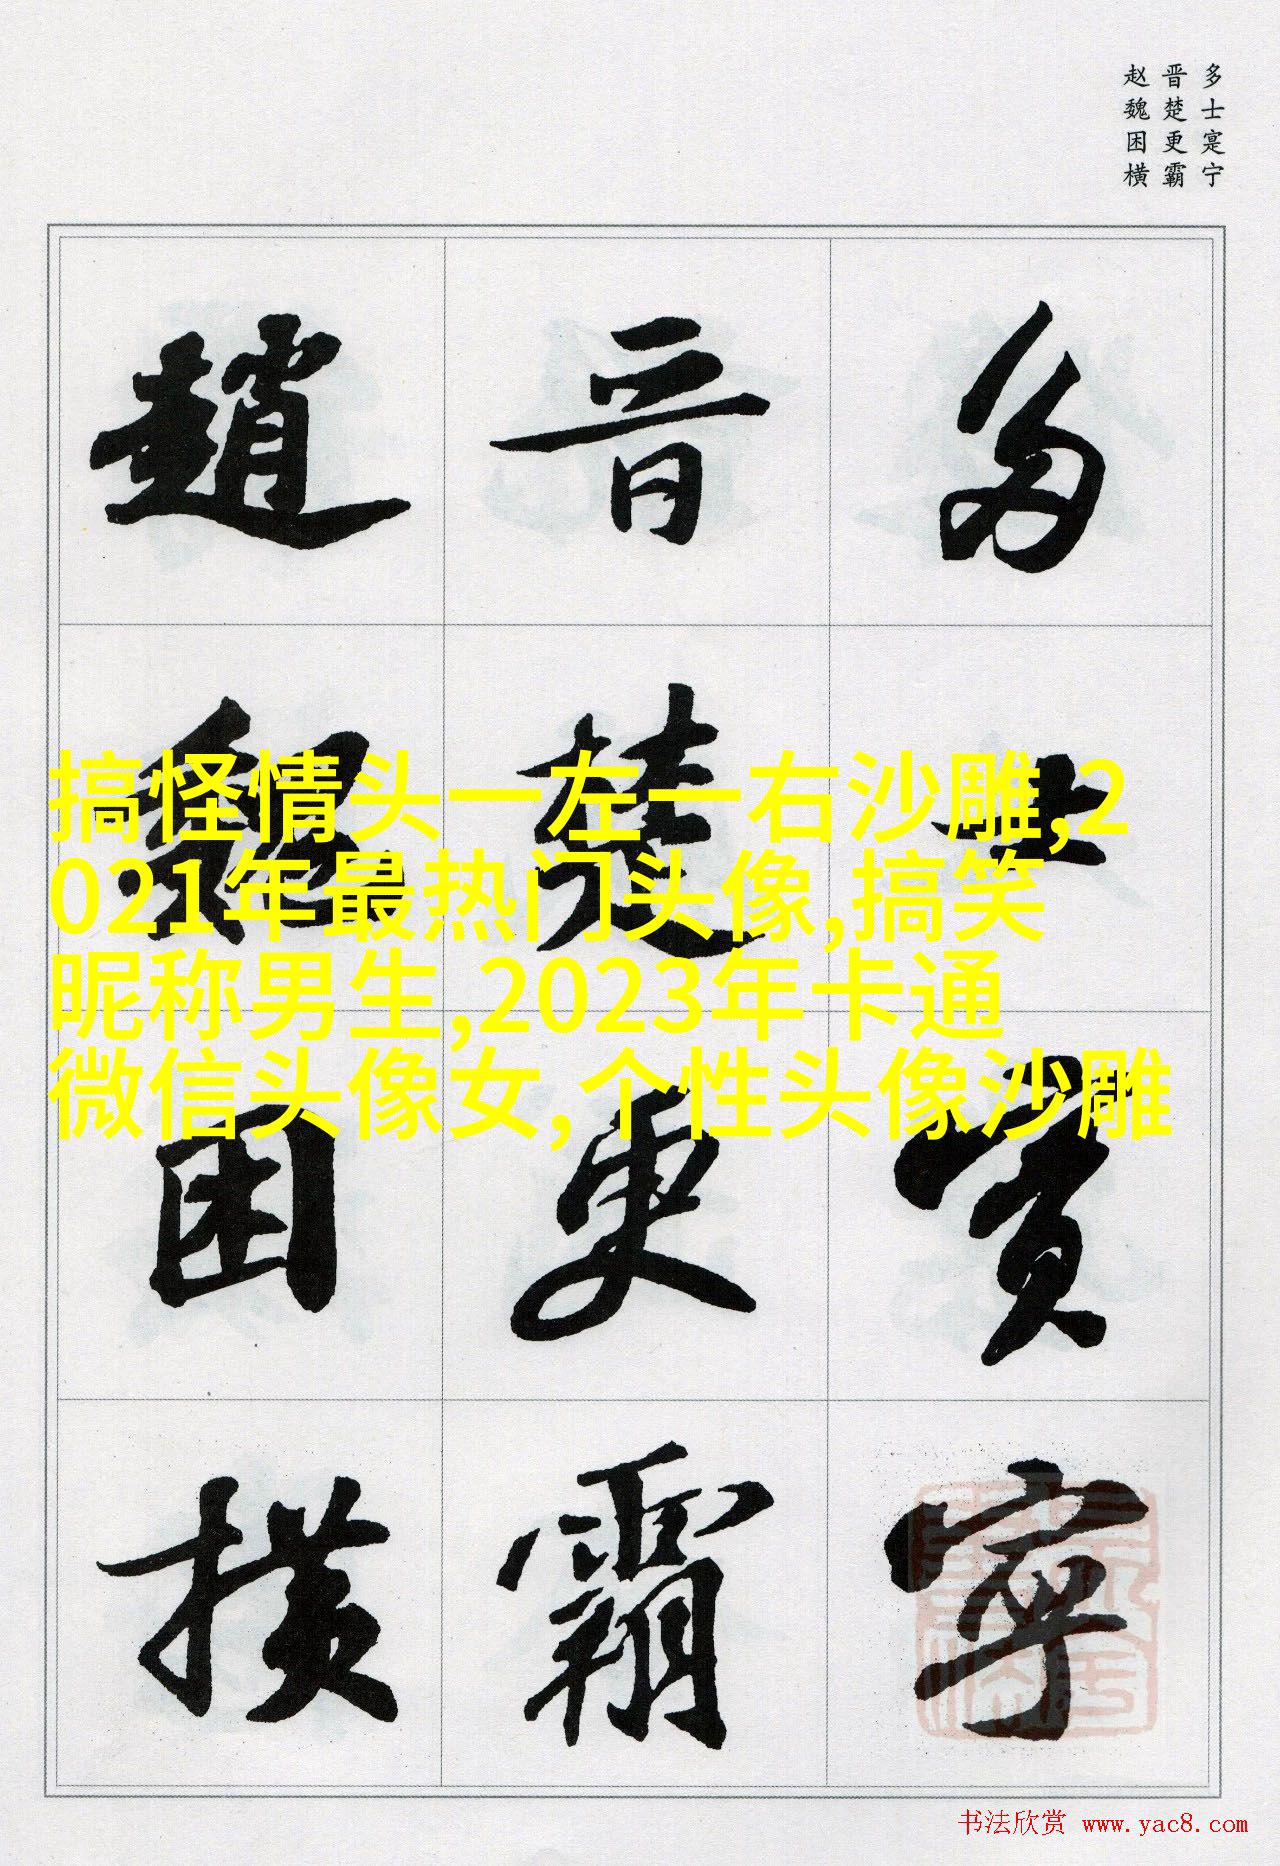 多士寔宁
晋楚更霸
赵魏困横
多士寔宁
晋楚更霸
趙魏困横
搞怪情头一左一右沙雕,2
021年最热门头像,搞笑
昵称男生,2023年卡通
微信头像女,个性头像沙雕
书法欣赏 www.yac8.com